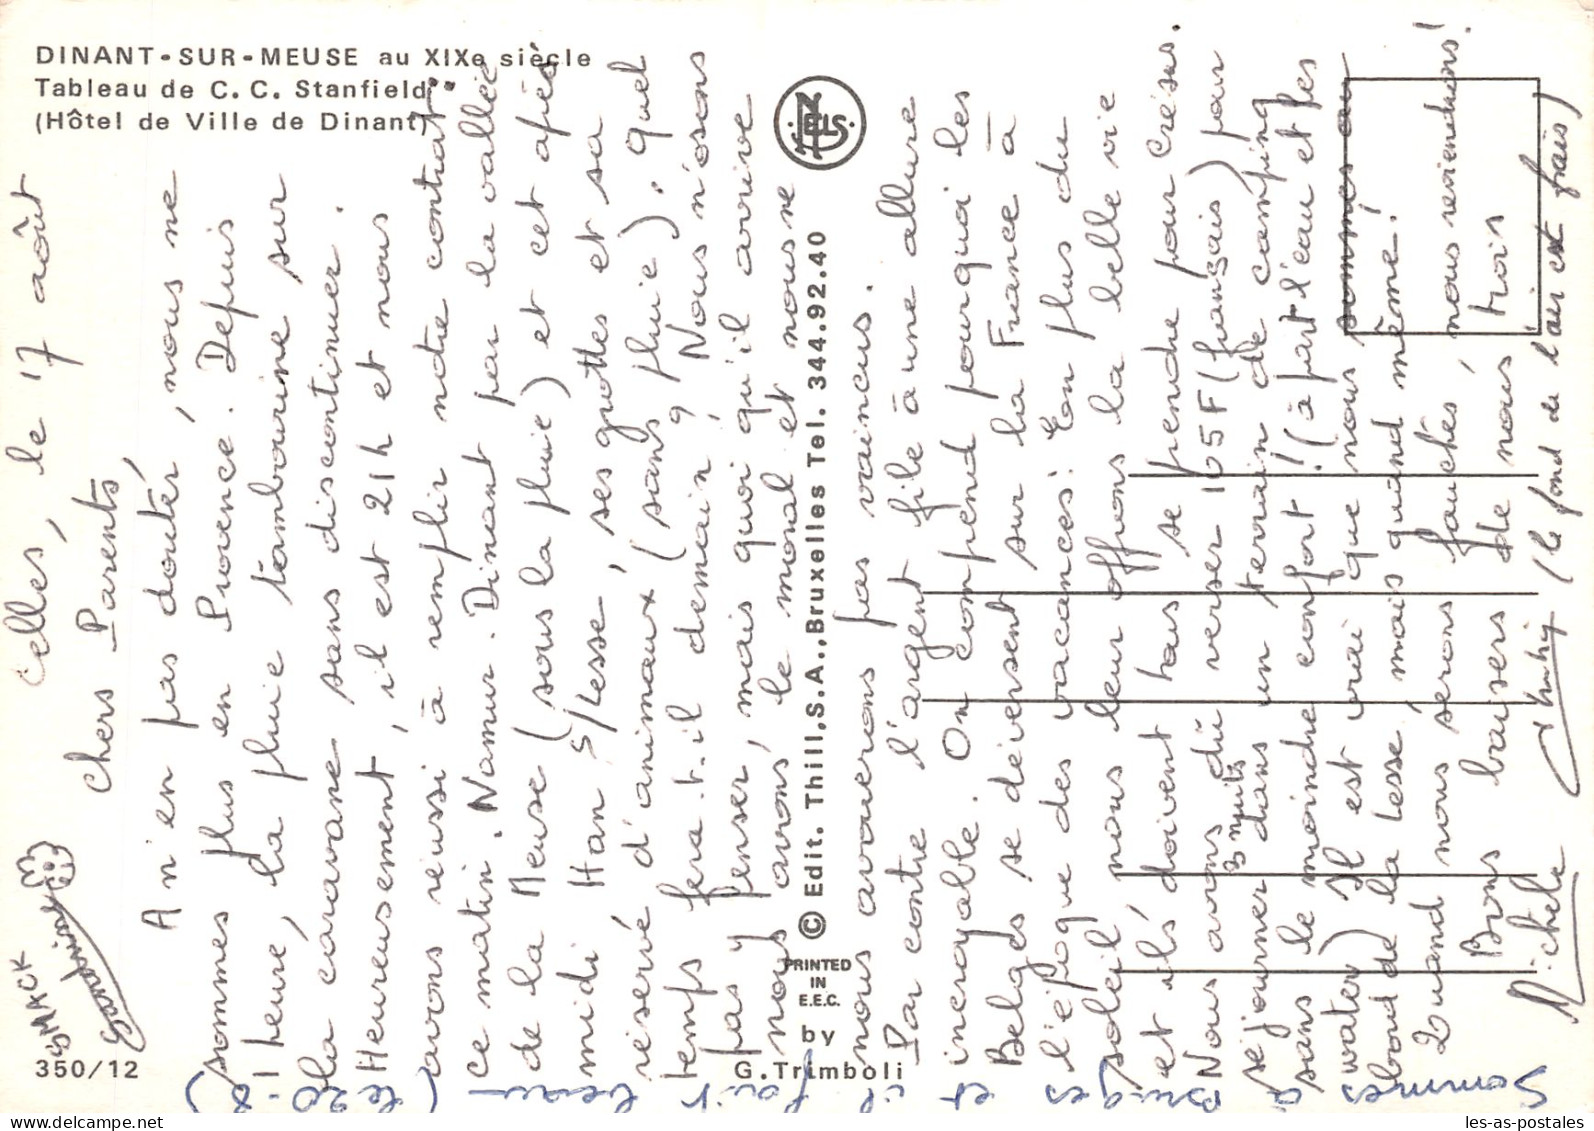 DINANT-SUR-MEUSE au XIXe siècle
Tableau de C. C. Stanfield
(Hôtel de Ville de Dinant)
Celles, le 17 août
Chers Parents,
A n'en pas douter, nous ne
sommes plus en Provence. Depuis
1 heure, la pluie tambourine sur
la caravane sans discontinuer.
Heureusement, il est 21h et nous
avons réussi à remplir notre contrat
ce matin. Namur. Dinant par la vallée
de la Meuse (sous la pluie) et cet après
midi Han s/Lesse, ses grottes et sa
réserve d'animaux (sans pluie). Quel
temps fera-t-il demain ? Nous n'osons
pas y penser, mais quoi qu'il arrive
nous avons le moral et nous ne
nous avouerons pas vaincus.
Par contre l'argent file à une allure
incroyable. On comprend pourquoi les
Belges se déversent sur la France à
l'époque des vacances! En plus du
soleil, nous leur offrons la belle vie
et ils doivent tous se prendre pour Crésus.
Nous avons dû verser 105F (français) pour
séjourner 3 nuits dans un terrain de camping
sans le moindre confort! (à part l'eau et les
water) Il est vrai que nous sommes au
bord de la Lesse mais quand même!
Quand nous serons fauchés, nous reviendrons!
Bons baisers de nous trois
Michele
(le fond de l'air est frais)
SMACK
Sandrine
350/12
© Edit. Thill,S.A.,Bruxelles Tel. 344.92.40
NELS
PRINTED
IN
E.E.C.
by
G.Trimboli
Sommes à Bruges et il fait beau (le 20-8)
les-as-postales